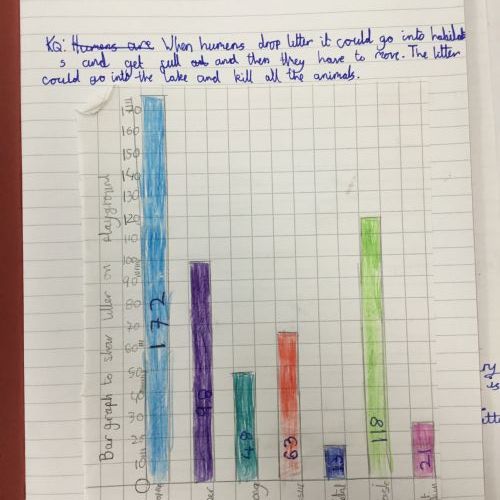 KQ: Humans are When humans drop litter it could go into habitat
s and get full and then they have to move. The litter
could go into the lake and kill all the animals.
Bar graph to show litter on playground
170
160
150
140
130
120
110
100
90
80
70
60
50
40
30
20
10
0
172
98
48
63
13
118
21